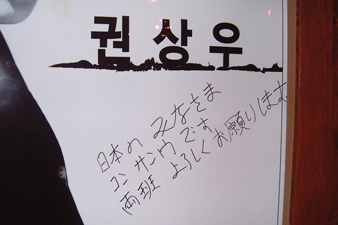 권상우
日本の みなさま
コン サンウ です
両班 よろしく お願いします